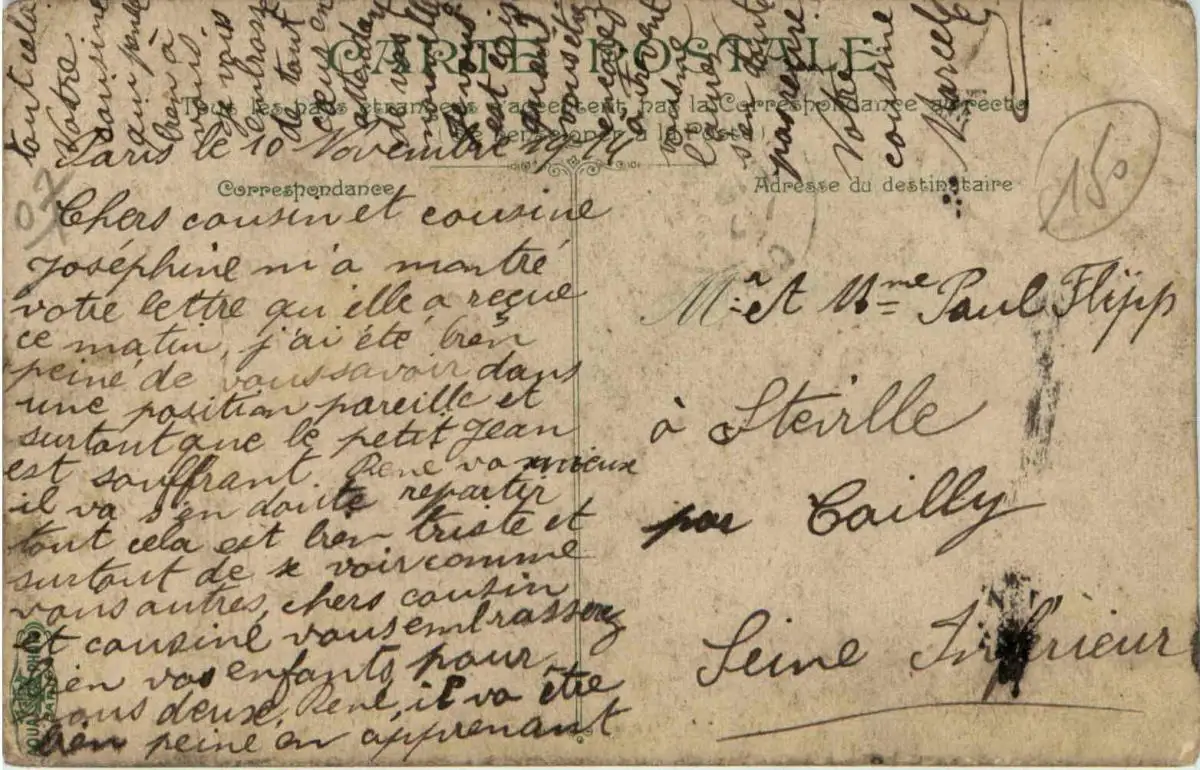 CARTE POSTALE
Tous les pays étrangers n'acceptent pas la Correspondance au recto
(Se renseigner à la Poste)
Paris le 10 Novembre 1914
Correspondance
Chers cousin et cousine
Joséphine m'a montré
votre lettre qu'elle a reçue
ce matin, j'ai été bien
peiné de vous savoir dans
une position pareille et
surtout que le petit Jean
est souffrant. René va mieux
il va s'en doute repartir
tout cela est bien triste et
surtout de se voir comme
vous autres, chers cousin
et cousine vous embrasserez
bien vos enfants pour
nous deux, René, il va être
bien peiné en apprenant
tout cela
Votre
cousine
qui pense
bien à
vous.
je vous
embrasse
de tout
coeur en
attendant
de vos
nouvelles
est
vous
à
votre
cousine
Marcelle
Adresse du destinataire
150
Mr et Mme Paul Flipp
à Steville
par Cailly
Seine Inférieur